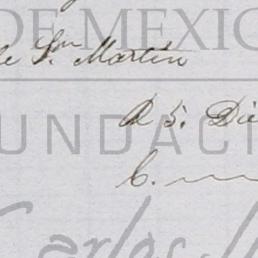 DE MEXIC
de Sn Martin
A 5. Die
FUNDACI
C.
Carlos